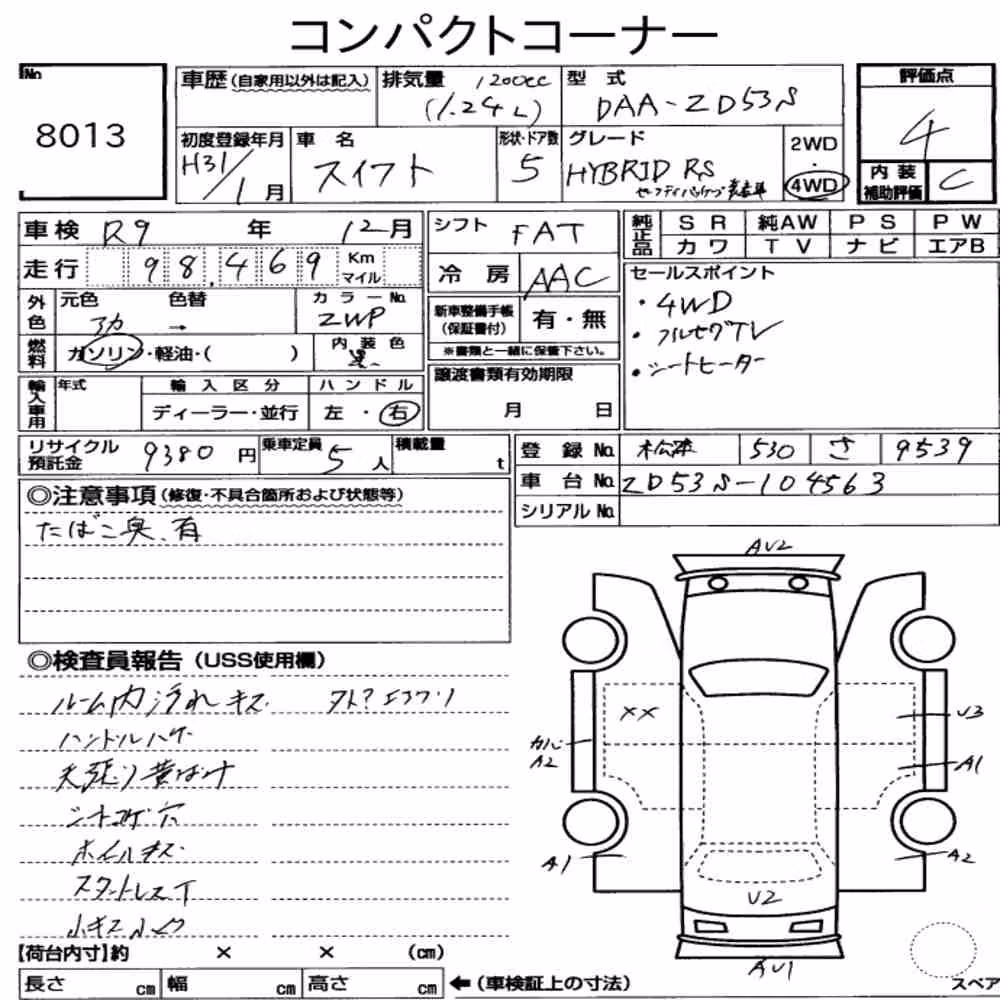 コンパクトコーナー
No.
8013
車歴(自家用以外は記入)
排気量 1200cc
(1.24L)
型式
DAA-ZD53S
評価点
4
初度登録年月
H31/1月
車名
スイフト
形状・ドア数
5
グレード
HYBRID RS
セーフティパッケージ装着車
2WD
・
4WD
内装
補助評価
C
車検 R9年 12月
シフト FAT
純正品 SR 純AW PS PW
カワ TV ナビ エアB
走行 98,469 Km マイル
冷房 AAC
セールスポイント
・4WD
・フルセグTV
・シートヒーター
外色 元色 色替 カラーNo.
アカ → ZWP
新車整備手帳
(保証書付)
有・無
※書類と一緒に保管下さい。
燃料 ガソリン・軽油・( ) 内装色
黒
輸入車用 年式 輸入区分 ハンドル
ディーラー・並行 左・右
譲渡書類有効期限
月 日
リサイクル
預託金 9380円
乗車定員 5人
積載量 t
登録No. 松本 530 さ 9539
車台No. ZD53S-104563
シリアルNo.
◎注意事項(修復・不具合箇所および状態等)
たばこ臭.有
◎検査員報告(USS使用欄)
ルーム内汚れキズ
ハンドルハゲ
天張り黄ばけ
シートコゲ穴
ホイルキズ
スタットレスT
小キズ小凹
AV2
××
カバ
A2
U3
A1
A1
A2
V2
AV1
スペア
【荷台内寸】約 × × (cm)
長さ cm 幅 cm 高さ cm ←(車検証上の寸法)